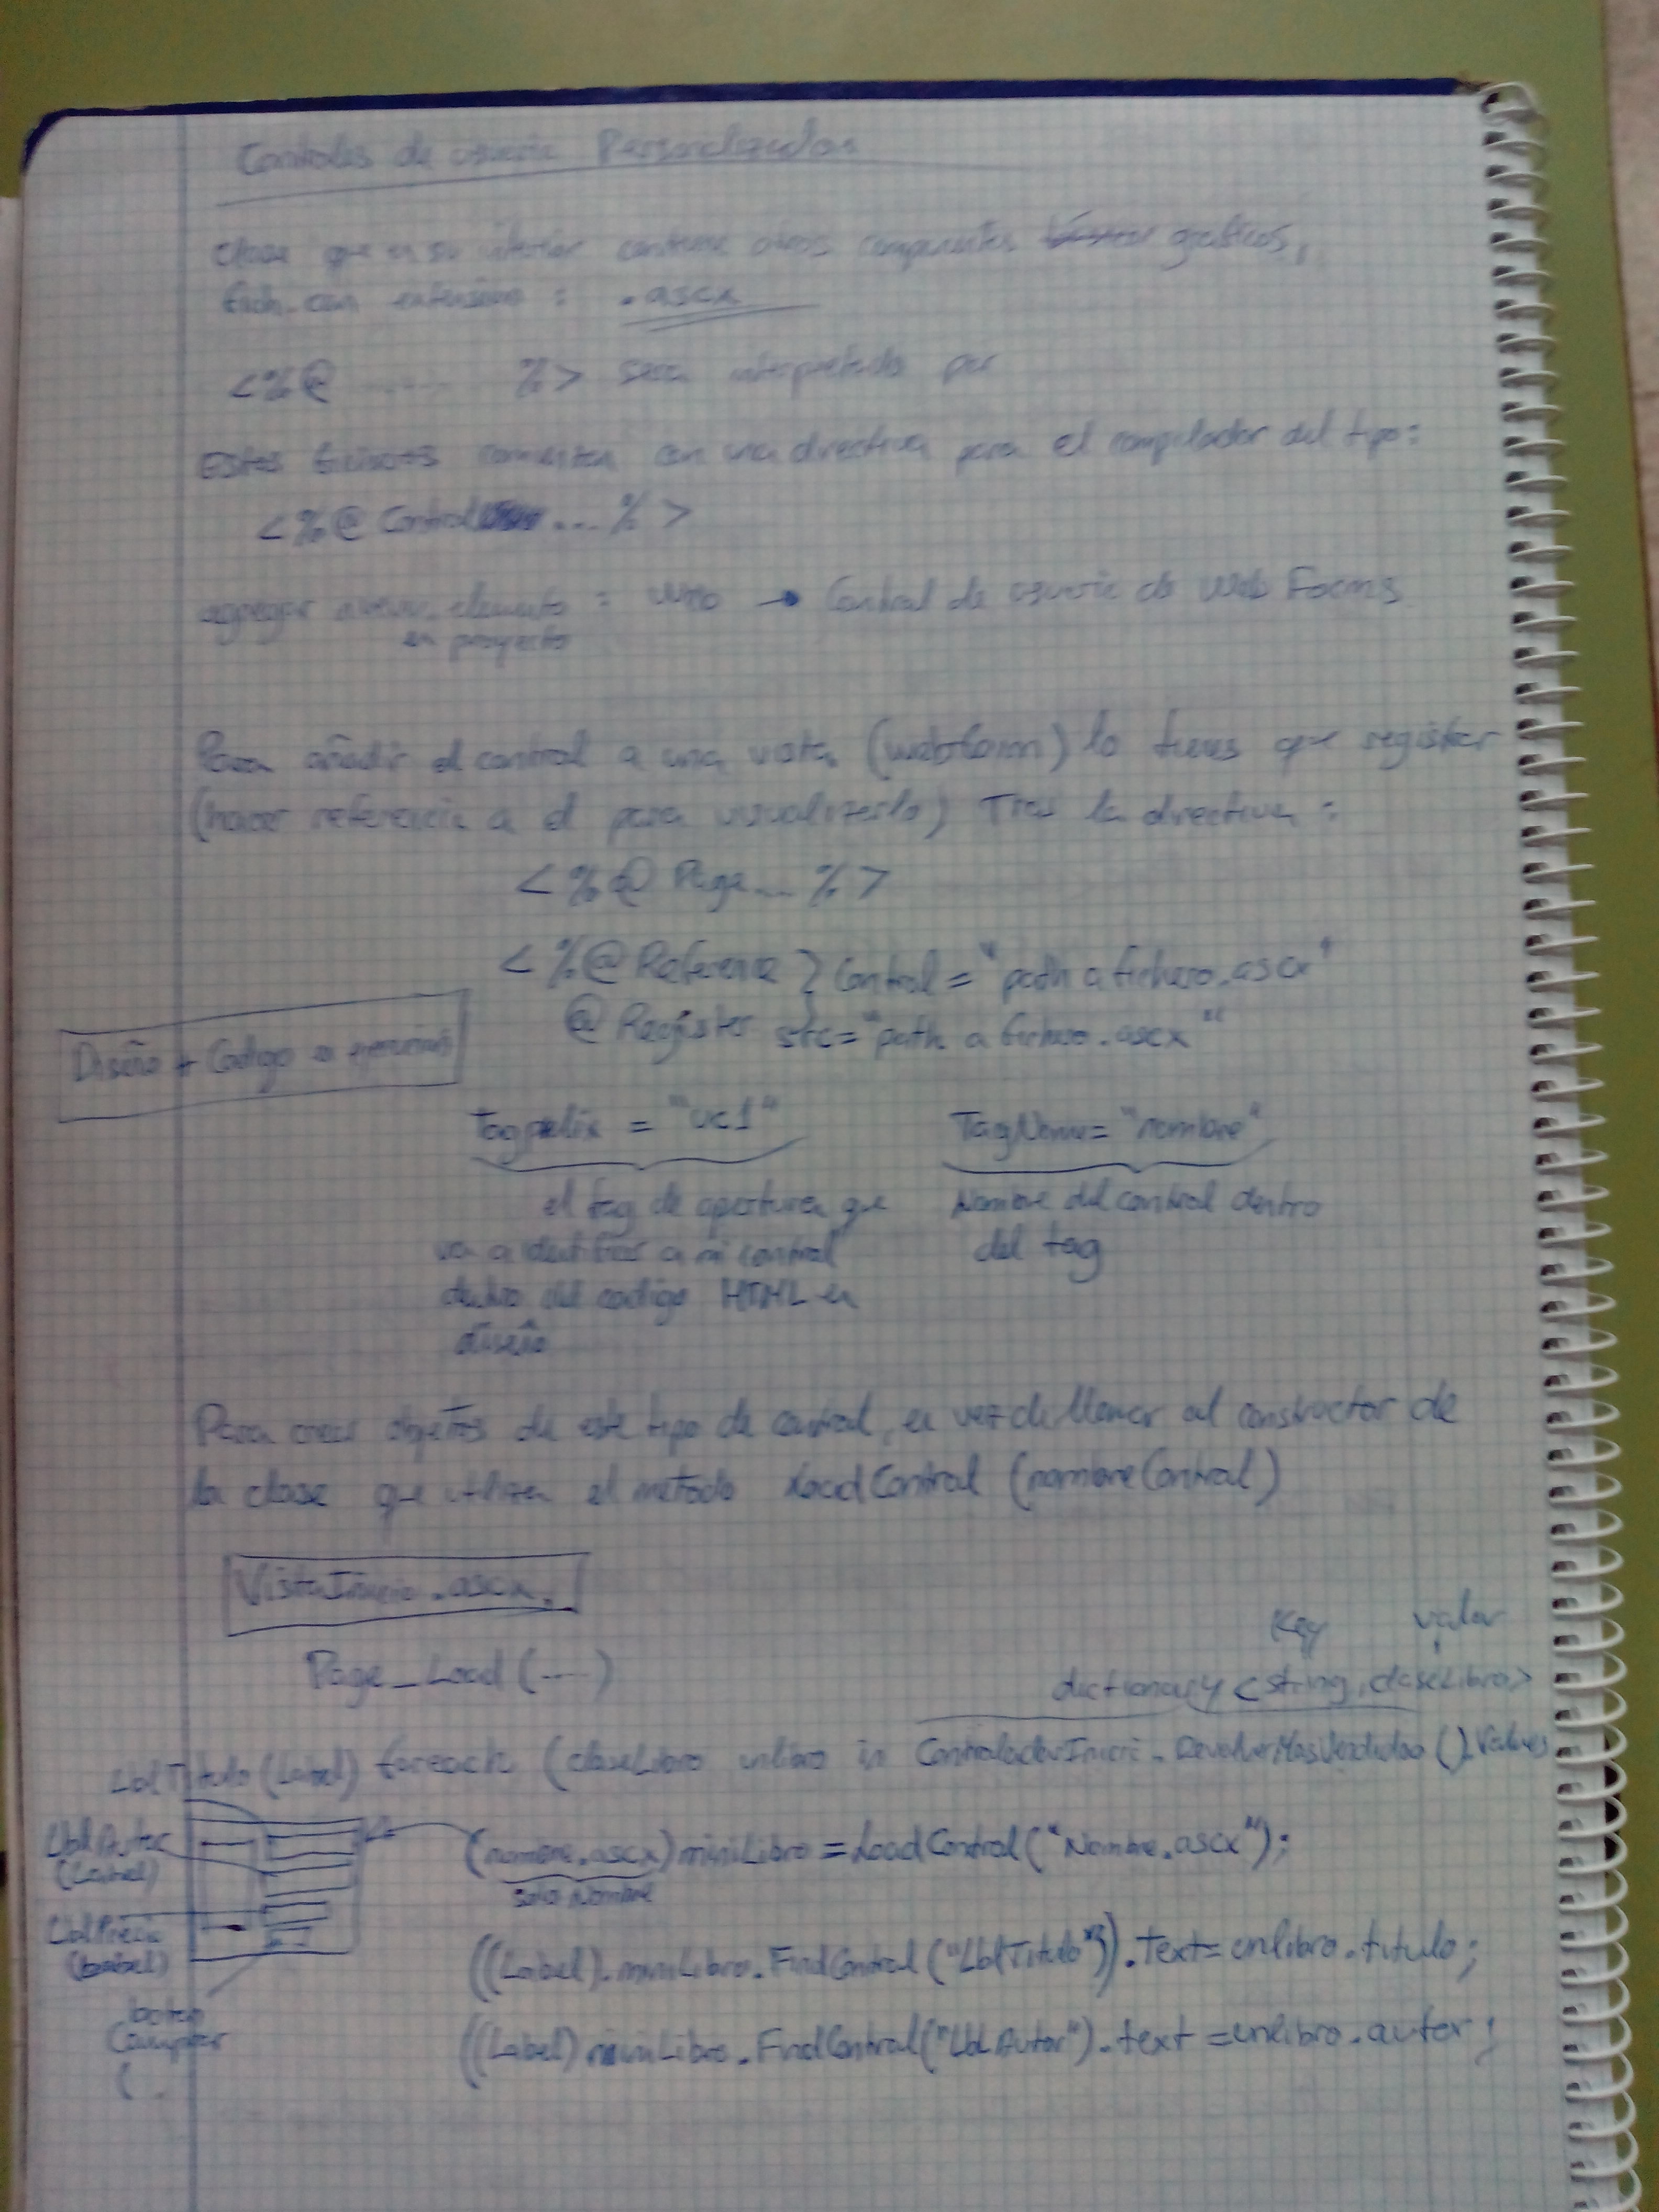 Controles de usuario Personalizados
Clase que en su interior contiene otros componentes gráficos,
fich. con extension : .ascx
<%@ ..... %> sera interpretado por
Estos ficheros comienzan con una directiva para el compilador del tipo:
<%@ Control ... %>
agregar nuevo elemento : Web → Control de usuario de Web Forms
en proyecto
Para añadir el control a una vista (webform) lo tienes que registrar
(hacer referencia a el para visualizarlo) Tras la directiva :
<%@ Page... %>
<%@ Reference } Control = "path a fichero.ascx"
@ Register src="path a fichero.ascx"
Diseño + Codigo en ejercicios
Tagprefix = "uc1" TagName= "nombre"
el tag de apertura que Nombre del control dentro
va a identificar a mi control del tag
dentro del codigo HTML en
diseño
Para crear objetos de este tipo de control, en vez de llamar al constructor de
la clase que utilizar el metodo LoadControl (nombreControl)
VistaInicio.ascx.
Key valor
Page_Load (....) dictionary <string, claseLibro>
LblTitulo (Label) foreach (claseLibro unlibro in ControladorInicio.DevolverMasVendidos().Values
LblAutor
(Label)
(nombre.ascx) miniLibro = LoadControl("Nombre.ascx");
solo Nombre
LblPrecio
(Label)
((Label).miniLibro.FindControl("LblTitulo")).Text= unlibro.titulo;
boton
Comprar
(.
((Label) miniLibro.FindControl("LblAutor").text = unlibro.autor;